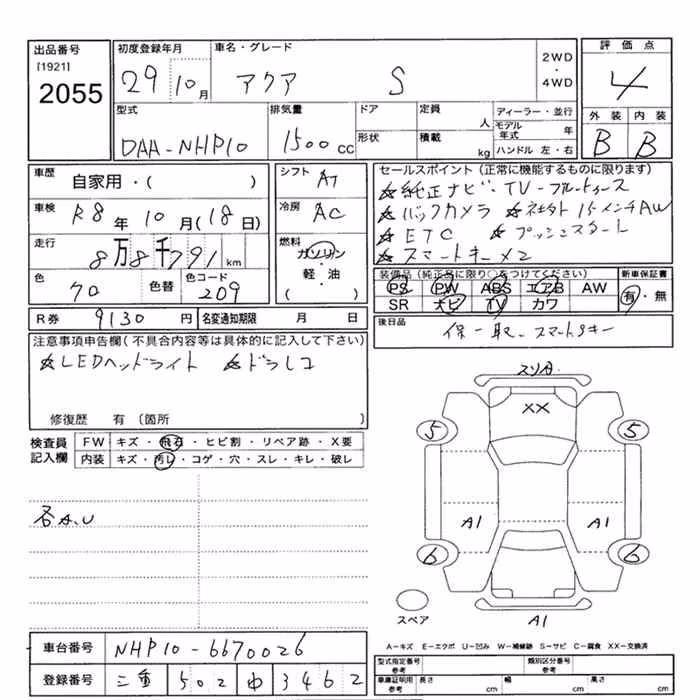 出品番号 初度登録年月 車名・グレード 2WD・4WD 評価点
[1921] 2055 29 10月 アクア S 4
型式 排気量 ドア 定員 人 ディーラー・並行 外装 内装
モデル年式 年
DAA-NHP10 1500cc 形状 積載 kg ハンドル 左・右 B B
車歴 自家用・( ) シフト AT
車検 R8年10月(18日) 冷房 AC
走行 8万8千791km 燃料 ガソリン・軽・油 ( )
色 クロ 色替 色コード 209
R券 9130円 名変通知期限 月 日
セールスポイント(正常に機能するものに限ります)
☆純正ナビ・TV-ブルートゥース
☆バックカメラ ☆社外15インチAW
☆ETC ☆プッシュスタート
☆スマートキー×2
装備品(純正品に限り○をつけてください) 新車保証書
PS PW ABS エアB AW 有・無
SR ナビ TV カワ
後日品 保-取-スマートキー
注意事項申告欄(不具合内容等は具体的に記入して下さい)
☆LEDヘッドライト ☆ドラレコ
修復歴 有(箇所 )
検査員記入欄 FW キズ・飛石・ヒビ割・リペア跡・X要
内装 キズ・汚レ・コゲ・穴・スレ・キレ・破レ
各A.U
スリ傷
XX
5 5
A1 A1
6 6
スペア A1
A-キズ E-エクボ U-凹み W-補修跡 S-サビ C-腐食 XX-交換済
車台番号 NHP10-6670026
登録番号 三重 502 ゆ 3462
型式指定番号 参考 類別区分番号 参考
車庫証明用 参考 長さ cm 幅 cm 高さ cm